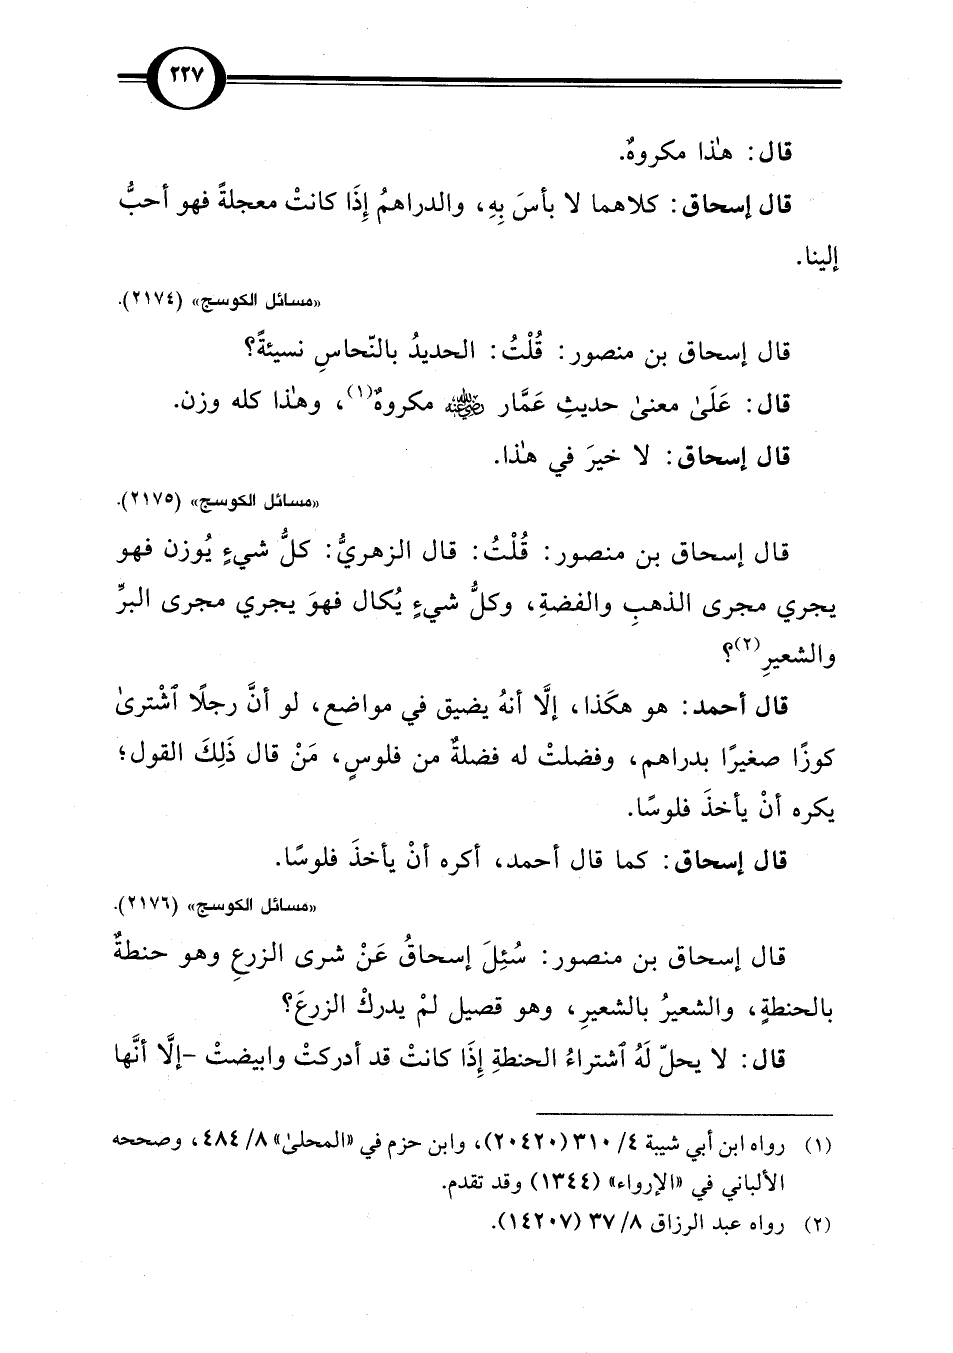 ٢٢٧
قال: هٰذا مكروهٌ.
قال إسحاق: كلاهما لا بأسَ بِهِ، والدراهمُ إِذَا كانتْ معجلةً فهو أحبُّ
إلينا.
«مسائل الكوسج» (٢١٧٤).
قال إسحاق بن منصور: قُلْتُ: الحديدُ بالنّحاسِ نسيئةً؟
قال: عَلَىٰ معنىٰ حديثِ عَمَّار ﵁ مكروهٌ(١)، وهٰذا كله وزن.
قال إسحاق: لا خيرَ في هٰذا.
«مسائل الكوسج» (٢١٧٥).
قال إسحاق بن منصور: قُلْتُ: قال الزهريُّ: كلُّ شيءٍ يُوزن فهو
يجري مجرى الذهبِ والفضةِ، وكلُّ شيءٍ يُكال فهوَ يجري مجرى البرِّ
والشعيرِ(٢)؟
قال أحمد: هو هكَذا، إلَّا أنهُ يضيق في مواضع، لو أنَّ رجلًا ٱشْترىٰ
كوزًا صغيرًا بدراهم، وفضلتْ له فضلةٌ من فلوسٍ، مَنْ قال ذَلِكَ القول؛
يكره أنْ يأخذَ فلوسًا.
قال إسحاق: كما قال أحمد، أكره أنْ يأخذَ فلوسًا.
«مسائل الكوسج» (٢١٧٦).
قال إسحاق بن منصور: سُئِلَ إسحاقُ عَنْ شرى الزرعِ وهو حنطةٌ
بالحنطةِ، والشعيرُ بالشعيرِ، وهو قصيل لمْ يدركْ الزرعَ؟
قال: لا يحلّ لَهُ ٱشتراءُ الحنطةِ إِذَا كانتْ قد أدركتْ وابيضتْ -إلَّا أنَّها
(١) رواه ابن أبي شيبة ٤/ ٣١٠ (٢٠٤٢٠)، وابن حزم في «المحلىٰ» ٨/ ٤٨٤، وصححه
الألباني في «الإرواء» (١٣٤٤) وقد تقدم.
(٢) رواه عبد الرزاق ٨/ ٣٧ (١٤٢٠٧).